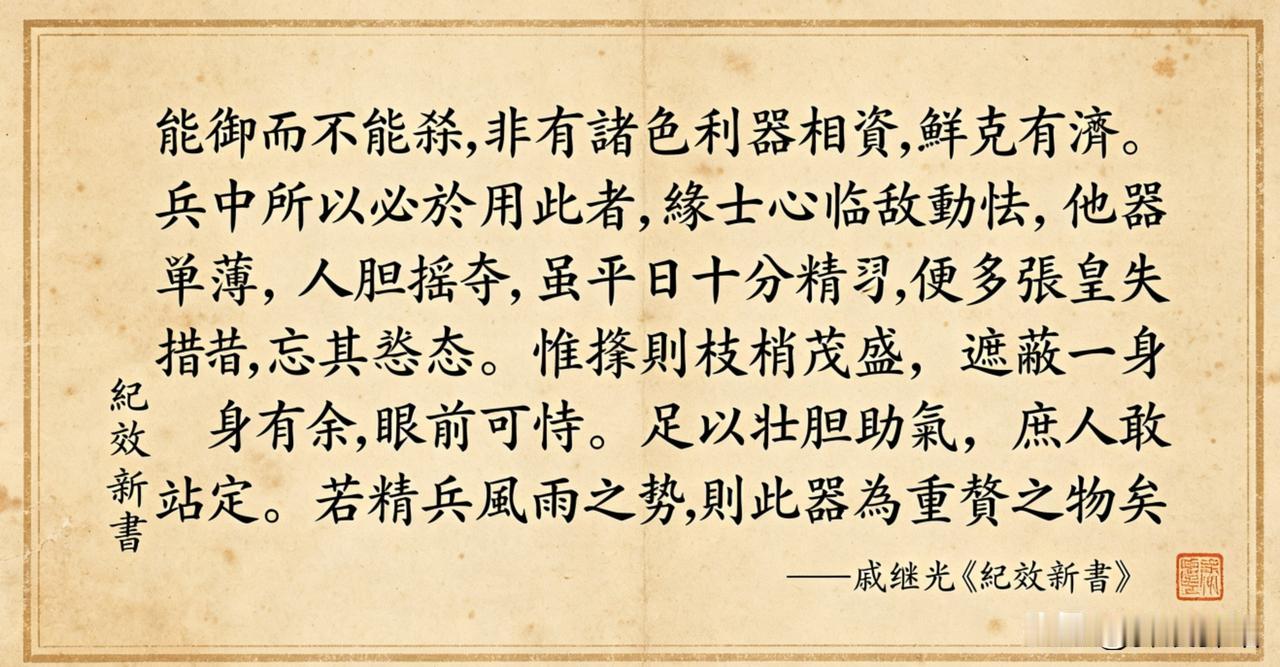 能御而不能殺,非有諸色利器相資,鮮克有濟。
兵中所以必於用此者,緣士心临敌動怯,他器
単薄,人胆摇夺,虽平日十分精习,便多張皇失
措昔,忘其恙态。惟撁則枝梢茂盛,遮蔽一身
身有余,眼前可恃。足以壮胆助氣,庶人敢
站定。若精兵風雨之势,則此器為重贅之物矣
——戚继光《紀效新書》
紀效新書